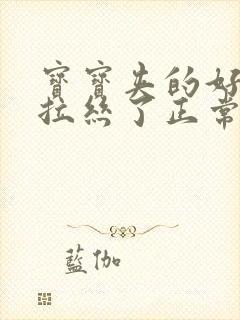 寶寶失的好
拉絲了正常
藍伽